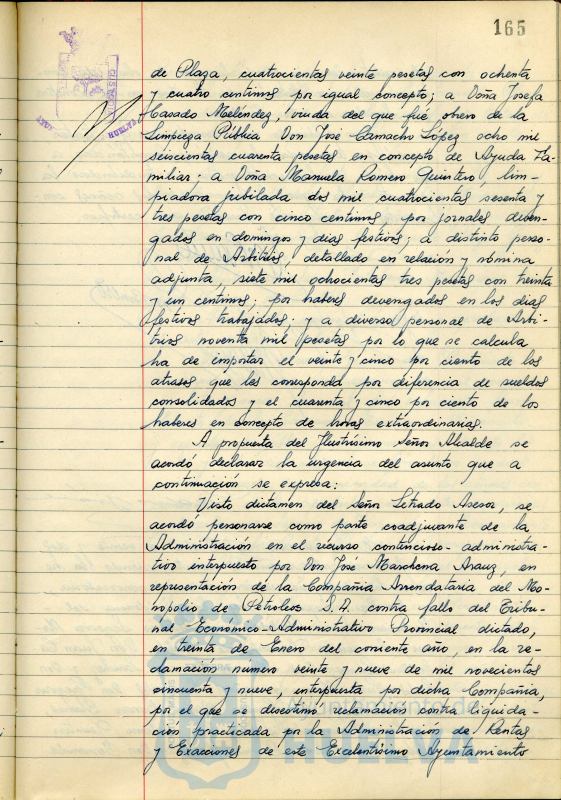 165
de Plaza, cuatrocientas veinte pesetas con ochenta
y cuatro centimos por igual concepto; a Doña Josefa
Casado Meléndez, viuda del que fué, obrero de la
Limpieza Pública Don José Camacho López ocho mil
seiscientas cuarenta pesetas en concepto de Ayuda Fa-
miliar; a Doña Manuela Romero Quintero, lim-
piadora jubilada dos mil cuatrocientas sesenta y
tres pesetas con cinco centimos, por jornales deven-
gados en domingos y dias festivos; a distinto perso-
nal de Arbitrios, detallado en relación y nómina
adjunta, siete mil ochocientas tres pesetas con treinta
y un centimos; por haberes devengados en los dias
festivos trabajados; y a diverso personal de Arbi-
trios noventa mil pesetas por lo que se calcula
ha de importar el veinte y cinco por ciento de los
atrasos que les corresponda por diferencia de sueldos
consolidados y el cuarenta y cinco por ciento de los
haberes en concepto de horas extraordinarias.
A propuesta del Ilustrísimo Señor Alcalde se
acordó declarar la urgencia del asunto que a
continuación se expresa:
Visto dictamen del Señor Letrado Asesor, se
acordó personarse como parte coadjuvante de la
Administración en el recurso contencioso-administra-
tivo interpuesto por Don José Marchena Arauz, en
representación de la Compañia Arrendataria del Mo-
nopolio de Petroleos S.A. contra fallo del Tribu-
nal Económico-Administrativo Provincial dictado,
en treinta de Enero del corriente año, en la re-
clamación número veinte y nueve de mil novecientos
cincuenta y nueve, interpuesta por dicha Compañia,
por el que se desestimó reclamación contra liquida-
ción practicada por la Administracion de Rentas
y Exacciones de este Excelentísimo Ayuntamiento
HUELVA